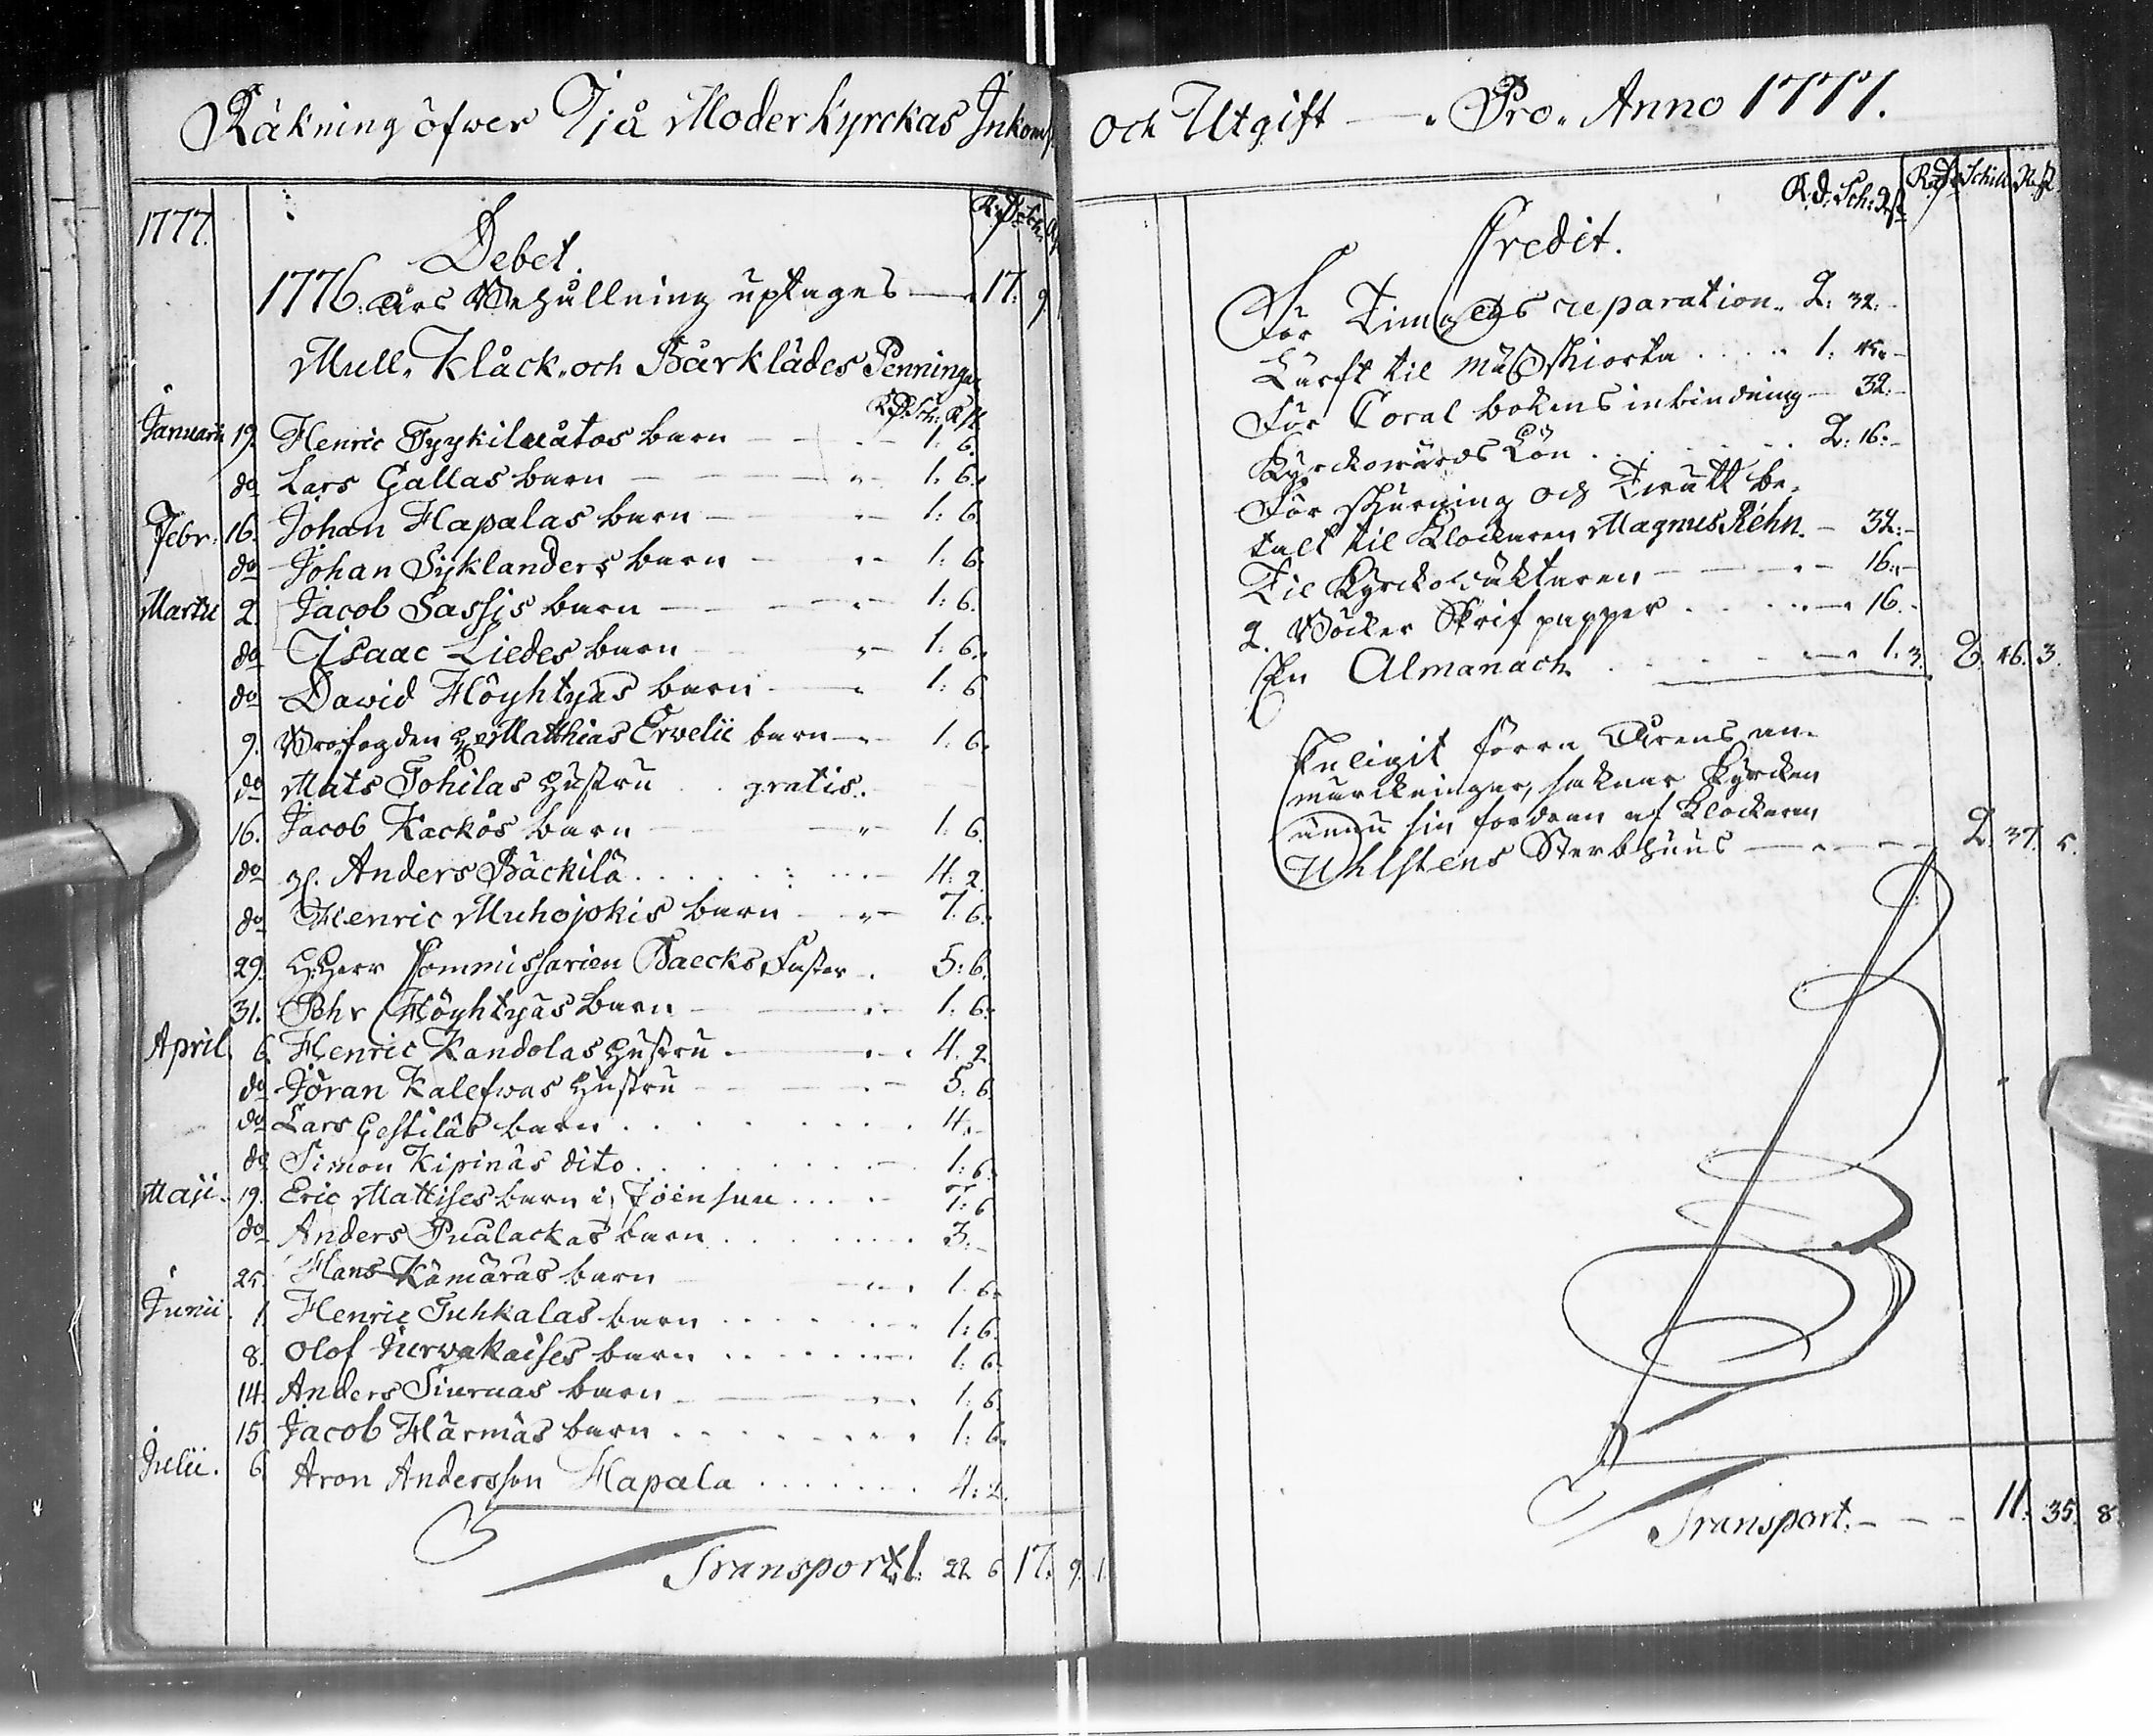 Räkning öfwer Ijå Moder Kyrckas Inkomst
1777.
R:d Sch:
Debet.
1776. års Behållning uptages — 17: 9
Mull, Klåck, och Bårklädes Penningar
Rd: Sch: Rst
Januarii 19. Henric Tyykiluåtos barn — 1: 6.
do Lars Gallas barn — 1: 6.
Febr: 16. Johan Hapalas barn — 1: 6.
do Johan Syklanders barn — 1: 6.
Martii 2. Jacob Sassis barn — 1: 6.
do Isaac Liedes barn — 1: 6.
do Dawid Höyhtyäs barn — 1: 6
9. Brofogden Hr Matthias Ervelii barn — 1: 6.
do Mats Tohilas hustru . . gratis.
16. Jacob Kackos barn — 1: 6.
do gl. Anders Bäckilä . . . . 4: 2.
do Henric Muhojokis barn — 7: 6.
29. H: Herr Commissarien Baecks Faster . 5: 6.
31. Pehr Höyhtyäs barn — 1: 6.
April. 6. Henric Kandolas hustru — 4. 2.
do Jöran Kalefwas hustru — 5: 6.
do Lars Gestiläs barn . . . . 4. -
do Simon Kipinäs dito . . . . 1: 6.
Maji. 19. Eric Mattises barn i Joensuu . . . 7: 6
do Anders Pualackas barn . . . . 3. -
25. Hans Kämäräs barn 1. 6.
Junii. 1. Henric Tuhkalas barn . . . . 1: 6.
8. Olof Hurwakaises barn . . . . 1: 6.
14. Anders Siuruas barn — 1: 6.
15. Jacob Härmäs barn . . . . 1: 6.
Julii. 6. Aron Andersson Hapala . . . . 4: 2.
Transport 1: 22. 6 17. 9. 1.
och Utgift — Pro. Anno 1777.
R.d: Sch: Rst Rd: Schill: Rst.
Credit.
För Timglas reparation. 2: 32: -
Lärft til mässskiorta . . . . 1. 45. -
För Coral bokens inbindning — 32: -
Kyrckowärds Lön . . . . 2: 16: -
För skurning och Twätt be-
talt til Klockaren Magnus Rehn. — 32: -
Til Kyrckowäktaren — 16: -
2. Böcker Skrif papper . . . . 16. -
En Almanach . . . . 1. 3. 8. 46. 3.
Enligit förra Årens an-
märckningar, saknar Kyrckan
ännu sin fordran af Klockaren
Uhlstens Sterbhuus — 2. 37. 5.
Transport. — 11. 35. 8.